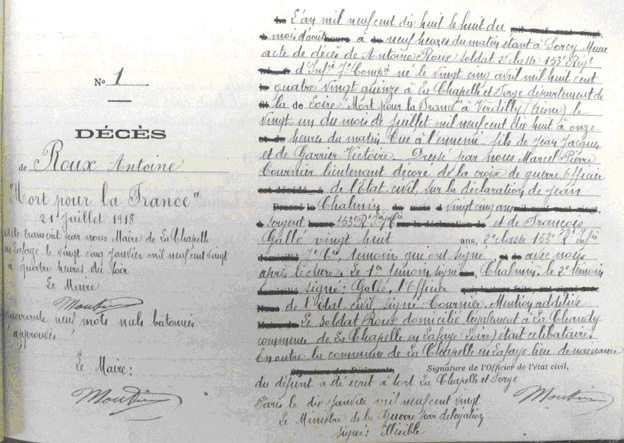 No 1
DÉCÈS
de Roux Antoine
"Mort pour la France"
21 juillet 1918
Acte transcrit par nous Maire de La Chapelle
en Lafaye le vingt cinq janvier mil neuf cent vingt
à quatre heures du soir
Le Maire
Moulin
quarante neuf mots nuls bâtonnés
approuvés
Le Maire:
Moulin
L'an mil neuf cent dix huit le huit du
mois d'août à neuf heures du matin étant à Sorcy Meuse
acte de décès de Antoine Roux soldat 2e classe 153e Regt
d'Infie 7e Compie né le vingt cinq avril mil huit cent
quatre vingt quinze à La Chapelle et Forge département de
la Loire "Mort pour la France" à Verdilly (Aisne) le
vingt un du mois de juillet mil neuf cent dix huit à onze
heures du matin Tué à l'ennemi fils de Jean Jacques
et de Garnier Victoire. Dressé par nous Marcel Pierre
Cournier lieutenant décoré de la croix de guerre officier
de l'état civil, sur la déclaration de Jean
Chalmin, vingt cinq ans
sergent 153e R. Ie 7e Cie et de François
Galle vingt huit ans, 2e classe 153e R Infie
7e Cie, témoins qui ont signé avec nous
après lecture. Le 1er témoin signé Chalmin, le 2e témoin
signé: Galle, l'Officier
de l'état civil, signé: Cournier. Mention additive
Le soldat Roux domicilié légalement à La Chandy
commune de La Chapelle en Lafaye (Loire) était célibataire.
En outre la commune de La Chapelle en Lafaye lieu de naissance
Signature de l'Officier de l'état civil,
du défunt a été écrit à tort La Chapelle et Forge
Paris le dix janvier mil neuf cent vingt
Moulin
Le Ministre de la Guerre par délégation
signé: illisible